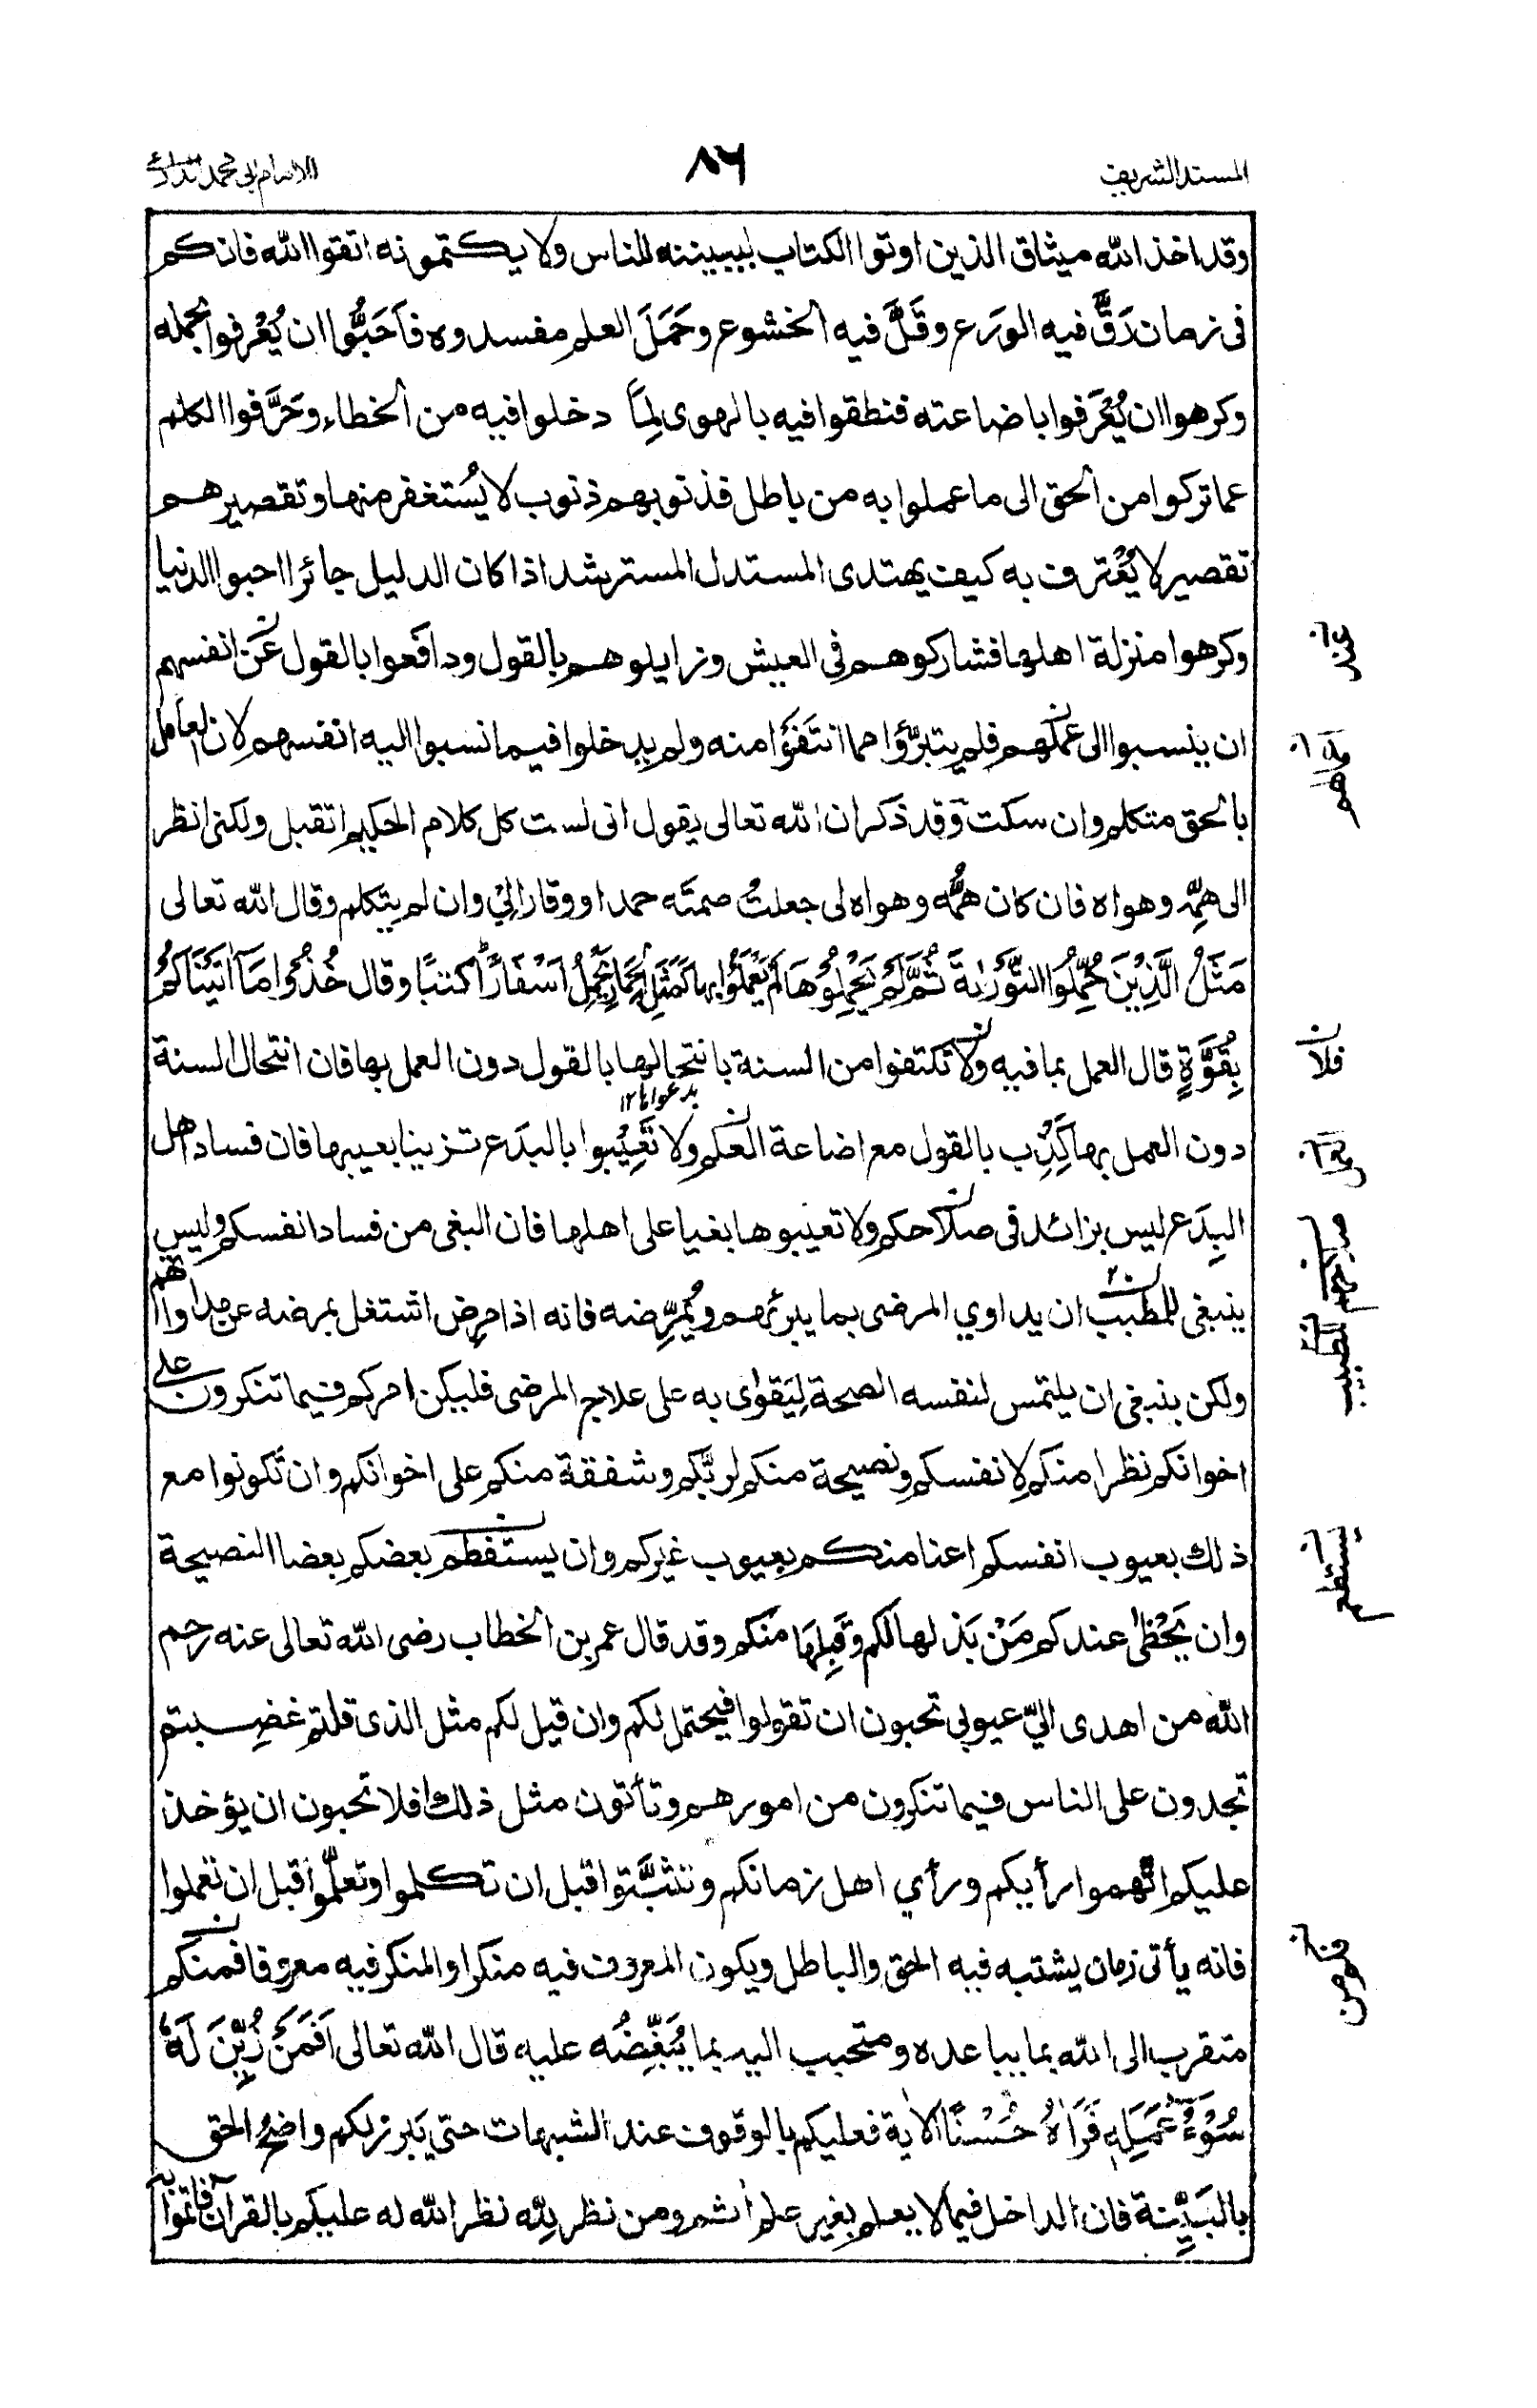 المسند الشريف
٨٦
وقد اخذ الله ميثاق الذين اوتوا الكتاب ليبيننه للناس ولا يكتمونه اتقوا الله فانكم
فى زمان رَقَّ فيه الورَع وقَلَّ فيه الخشوع وحَمَلَ العلم مفسدوه فاَحَبُّوا ان يُعْرفوا بحمله
وكرهوا ان يُعْرَفوا باضاعته فنطقوا فيه بالهوى لِمَا دخلوا فيه من الخطاء وحَرَّفوا الكلم
عما تركوا من الحق الى ما عملوا به من باطل فذنوبهم ذنوب لا يُستغفر منها وتقصيرهم
تقصير لا يُعْترف به كيف يهتدى المستدل المسترشد اذا كان الدليل جائرا احبوا الدنيا
وكرهوا منزلة اهلها فشاركوهم فى العيش وزايلوهم بالقول ودافعوا بالقول عَن انفسهم
عند
ان ينسبوا الى عملهم فلم يتبرَّؤا مما انتَفَوْا منه ولم يدخلوا فيما نسبوا اليه انفسهم لان العامل
بالحق متكلم وان سكت وَقد ذكر ان الله تعالى يقول انى لست كل كلام الحكيم اتقبل ولكنى انظر
الى هِمِّه وهواه فان كان هَمُّه وهواه لى جعلتُ صمتَه حمدا ووقارا لِيْ وان لم يتكلم وقال الله تعالى
مَثَلُ الَّذِيْنَ حُمِّلُوا التَّوْرٰىةَ ثُمَّ لَمْ يَحْمِلُوْهَا لَمْ يَعْمَلُوْا بها كَمَثَلِ الْحِمَارِ يَحْمِلُ اَسْفَارًا كتبًا وقال خُذُوْا مَآ اٰتَيْنَاكُمْ
بِقُوَّةٍ قال العمل بما فيه ولا تكتفوا من السنة بانتحالها بالقول دون العمل بها فان انتحال السنة
فلا
بدعواها ١٢
دون العمل بها كَذِب بالقول مع اضاعة العلم ولا تَعِيْبوا بالبدَع تزينا بعيبها فان فساد اهل
البِدَع ليس بزائد فى صلاحكم ولا تعيبوها بغيا على اهلها فان البغى من فساد انفسكم وليس
صلاحهم
ينبغى للمطبب ان يداوي المرضى بما يبرئهم ويُمَرِّضه فانه اذا مرِض اشتغل بمرضه عن مداواتهم
الطبيب
ولكن ينبغى ان يلتمس لنفسه الصحة لِيَقوٰى به على علاج المرضى فليكن امركم فيما تنكرون على
اخوانكم نظرا منكم لِانفسكم ونصيحة منكم لربّكم وشفقة منكم على اخوانكم وان تكونوا مع
ذلك بعيوب انفسكم اعنا منكم بعيوب غيركم وان يستفطم بعضكم بعضا النصيحة
يستطعم
وان يَحْظٰى عندكم مَنْ بَذلها لكم وَقَبِلَهَا منكم وقد قال عمر بن الخطاب رضى الله تعالى عنه رحم
الله من اهدى اليّ عيوبى تحبون ان تقولوا فيحتمل لكم وان قيل لكم مثل الذى قلتم غضِبتم
تجدون على الناس فيما تنكرون من امورهم وتأتون مثل ذلك افلا تحبون ان يؤخذ
عليكم اتَّهموا رأيكم ورأي اهل زمانكم وتثبَّتوا قبل ان تكلموا وتعلَّموا قبل ان تعملوا
فانه يأتى زمان يشتبه فيه الحق والباطل ويكون المعروف فيه منكرا والمنكر فيه معروفا فمنكم
متقرب الى الله بما يباعده ومتحبب اليه بما يُبَغِّضُه عليه قال الله تعالى اَفَمَنْ زُيِّنَ لَهٗ
سُوْٓءُ عَمَلِهٖ فَرَاٰهُ حُسْنًا الاٰية فعليكم بالوقوف عند الشبهات حتى يَبرز لكم واضحُ الحق
بالبَيِّنة فان الداخل فيما لا يعلم بغير علم اٰثم ومن نظر لِلّٰه نظر الله له عليكم بالقرآن فاتموا به